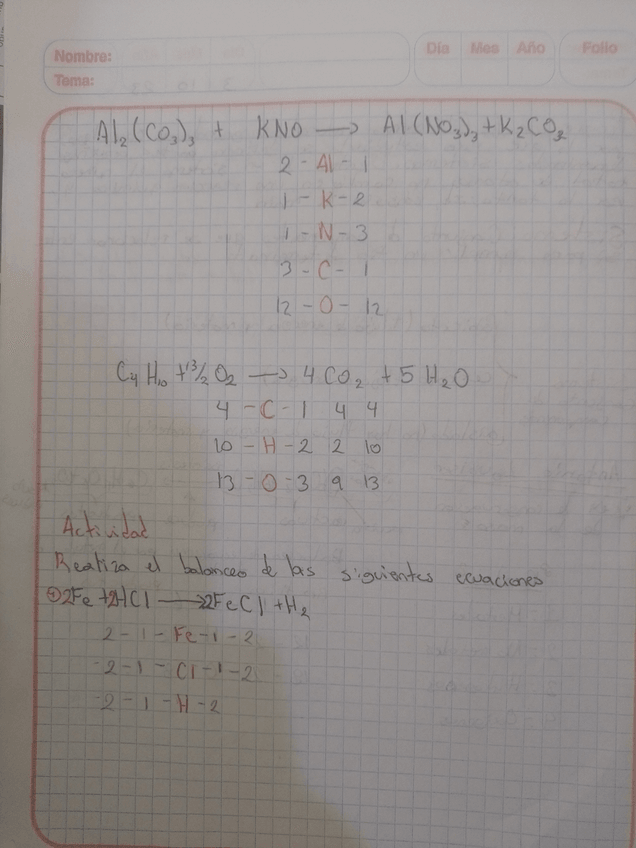 Nombre: Día Mes Año Folio
Tema:
Al₂(CO₃)₃ + KNO → Al(NO₃)₃ + K₂CO₂
2 - Al - 1
1 - K - 2
1 - N - 3
3 - C - 1
12 - O - 12
C₄H₁₀ + 13/2 O₂ → 4 CO₂ + 5 H₂O
4 - C - 1 4 4
10 - H - 2 2 10
13 - O - 3 9 13
Actividad
Realiza el balanceo de las siguientes ecuaciones
2Fe + 2HCl → 2FeCl + H₂
2 - 1 - Fe - 1 - 2
2 - 1 - Cl - 1 - 2
2 - 1 - H - 2